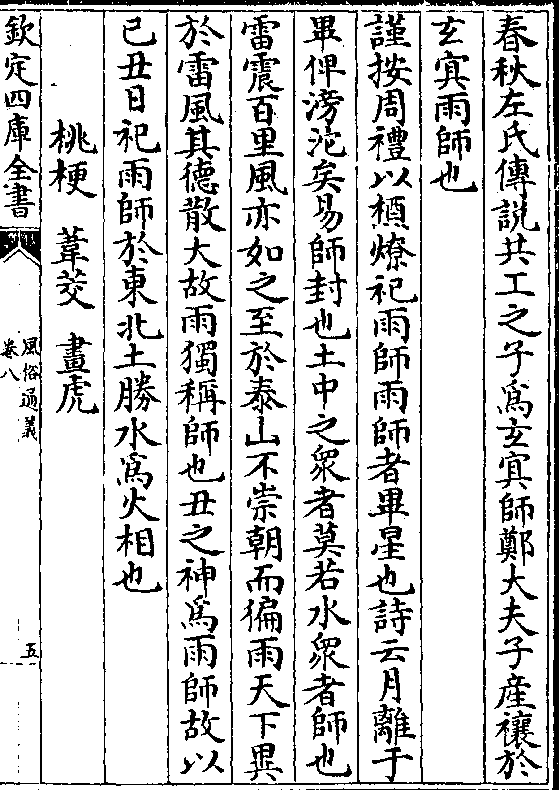 春秋左氏傳說共工之子爲玄冥師鄭大夫子產禳於
玄冥雨師也
謹按周禮以槱燎祀雨師雨師者畢星也詩云月離于
畢俾滂沱矣易師封也土中之衆者莫若水衆者師也
雷震百里風亦如之至於泰山不崇朝而徧雨天下異
於雷風其德散大故雨獨稱師也丑之神爲雨師故以
己丑日祀雨師於東北土勝水爲火相也
桃梗 葦茭 畫虎
欽定四庫全書
風俗通義
卷八
五